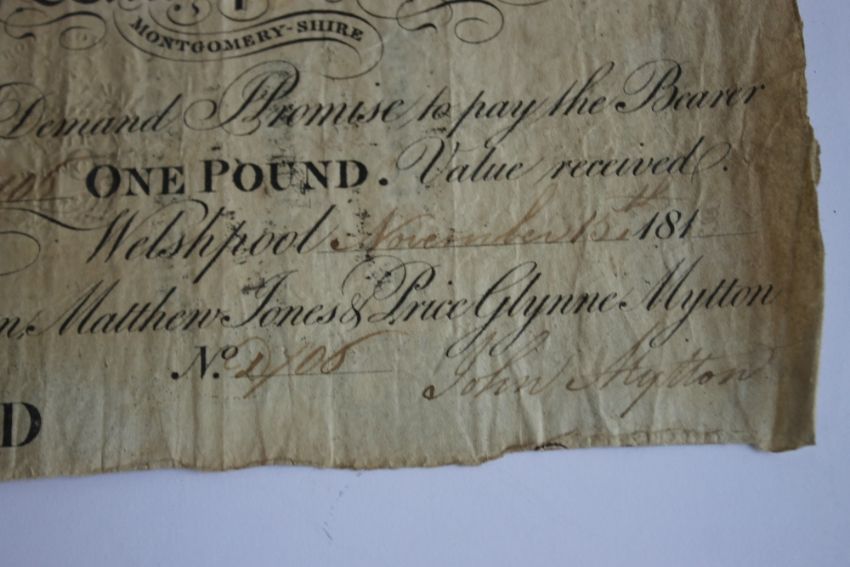 MONTGOMERY-SHIRE
Demand Promise to pay the Bearer
ONE POUND. Value received.
Welshpool November 15th 181
Matthew Jones & Price Glynne Mytton
No. 2406
John Mytton
D